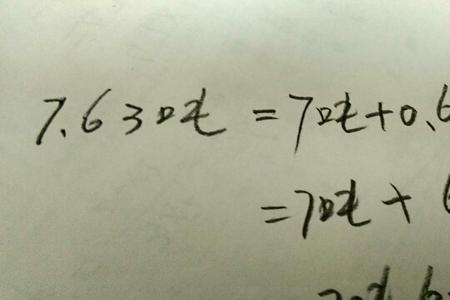 7.63吨 = 7吨+0.6
= 7吨 +